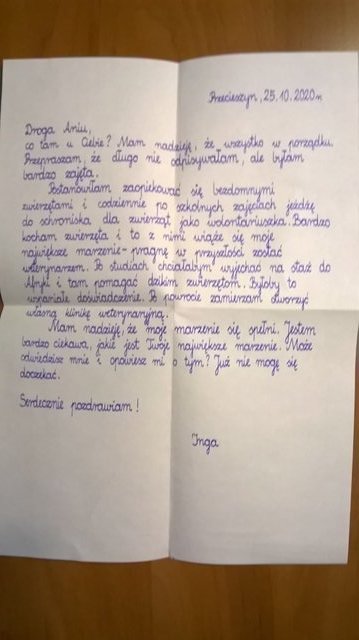 Przecieszyn, 25.10.2020r.
Droga Aniu,
co tam u Ciebie? Mam nadzieję, że wszystko w porządku.
Przepraszam, że długo nie odpisywałam, ale byłam
bardzo zajęta.
Postanowiłam zaopiekować się bezdomnymi
zwierzętami i codziennie po szkolnych zajęciach jeżdżę
do schroniska dla zwierząt jako wolontariuszka. Bardzo
kocham zwierzęta i to z nimi wiąże się moje
największe marzenie - pragnę w przyszłości zostać
weterynarzem. Po studiach chciałabym wyjechać na staż do
Afryki i tam pomagać dzikim zwierzętom. Byłoby to
wspaniałe doświadczenie. Po powrocie zamierzam otworzyć
własną klinikę weterynaryjną.
Mam nadzieję, że moje marzenie się spełni. Jestem
bardzo ciekawa, jakie jest Twoje największe marzenie. Może
odwiedzisz mnie i opowiesz mi o tym? Już nie mogę się
doczekać.
Serdecznie pozdrawiam!
Inga